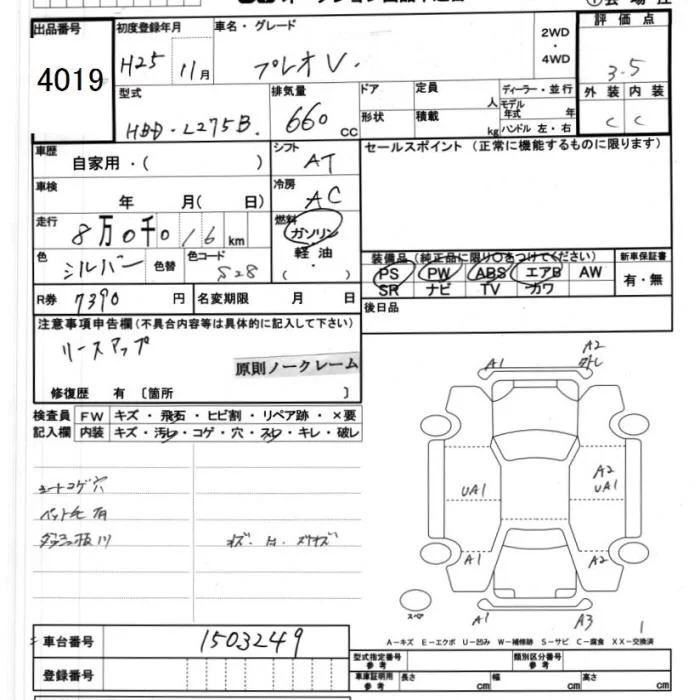 出品番号 初度登録年月 車名・グレード 2WD・4WD 評価点
4019 H25 11月 プレオV. 3.5
型式 排気量 ドア 定員 人 ディーラー・並行 外装 内装
HBD-L275B. 660 cc 形状 積載 kg モデル年式 年 ハンドル 左・右 C C
車歴 自家用・( ) シフト AT セールスポイント(正常に機能するものに限ります)
車検 年 月( 日) 冷房 AC
走行 8万0千0 16 km 燃料 ガソリン 軽油 ・( )
色 シルバー 色替 色コード S28
装備品(純正品に限り○をつけてください) 新車保証書
PS PW ABS エアB AW 有・無
SR ナビ TV カワ
R券 7390 円 名変期限 月 日 後日品
注意事項申告欄(不具合内容等は具体的に記入して下さい)
リースアップ
原則ノークレーム
修復歴 有 〔箇所 〕
検査員 FW キズ・飛石・ヒビ割・リペア跡・×要
記入欄 内装 キズ・汚れ・コゲ・穴・スレ・キレ・破レ
A1 A2
UA1 A2 UA1
シートコゲ穴
ペット毛有
キズ・凹・スリキズ
A1 A2
スペア A1 A3
1
A-キズ E-エクボ U-凹み W-補修跡 S-サビ C-腐食 XX-交換済
車台番号 1503249
型式指定番号 参考 類別区分番号 参考
登録番号 車庫証明用 参考 長さ cm 幅 cm 高さ cm